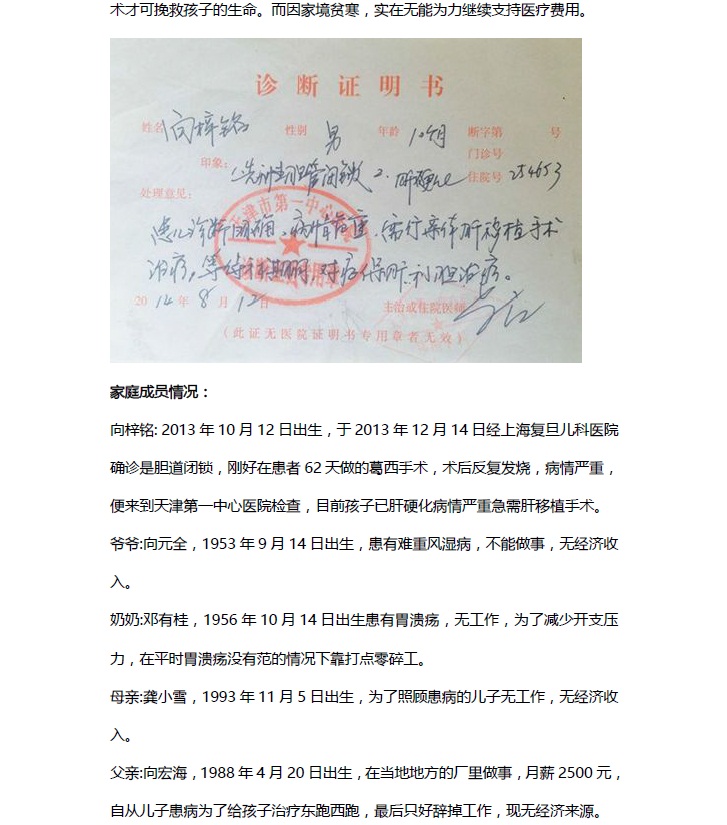 术才可挽救孩子的生命。而因家境贫寒，实在无能为力继续支持医疗费用。
诊断证明书
姓名 向梓铭 性别 男 年龄 10个月 断字第 号
门诊号
印象： 1.先天性胆管闭锁 2.肝硬化 住院号 254653
处理意见：
天津市第一中心医院
患儿诊断明确，病情危重，需行亲体肝移植手术
治疗，等待 期间，对症保肝利胆治疗。
2014年8月12日 主治或住院医师
（此证无医院证明书专用章者无效）
家庭成员情况：
向梓铭: 2013 年 10 月 12 日出生，于 2013 年 12 月 14 日经上海复旦儿科医院
确诊是胆道闭锁，刚好在患者 62 天做的葛西手术，术后反复发烧，病情严重，
便来到天津第一中心医院检查，目前孩子已肝硬化病情严重急需肝移植手术。
爷爷:向元全，1953 年 9 月 14 日出生，患有难重风湿病，不能做事，无经济收
入。
奶奶:邓有桂，1956 年 10 月 14 日出生患有胃溃疡，无工作，为了减少开支压
力，在平时胃溃疡没有范的情况下靠打点零碎工。
母亲:龚小雪，1993 年 11 月 5 日出生，为了照顾患病的儿子无工作，无经济收
入。
父亲:向宏海，1988 年 4 月 20 日出生，在当地地方的厂里做事，月薪 2500 元，
自从儿子患病为了给孩子治疗东跑西跑，最后只好辞掉工作，现无经济来源。